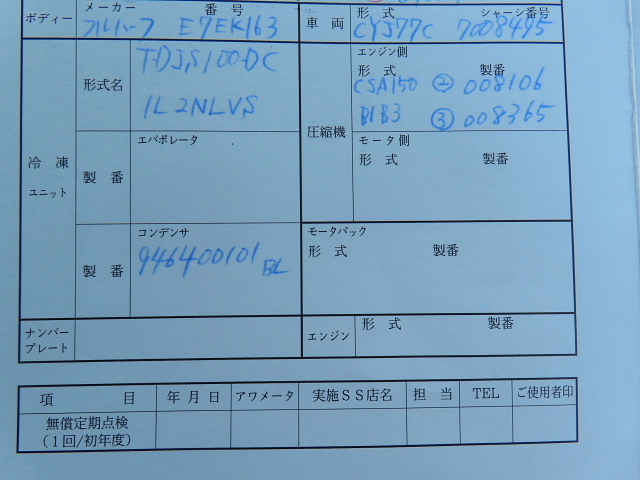 ボディー メーカー 番号 車両 形式 シャーシ番号
フルハーフ E7EK163 CYJ77C 7008495
冷凍ユニット 形式名 T-DJS100DC
1L2NLVS
圧縮機 エンジン側
形式 製番
CSA150 ② 008106
B1B3 ③ 008365
製番 エバポレータ
モータ側
形式 製番
製番 コンデンサ
946400101BL
モータパック
形式 製番
ナンバープレート
エンジン 形式 製番
項目 年月日 アワメータ 実施SS店名 担当 TEL ご使用者印
無償定期点検
(1回/初年度)